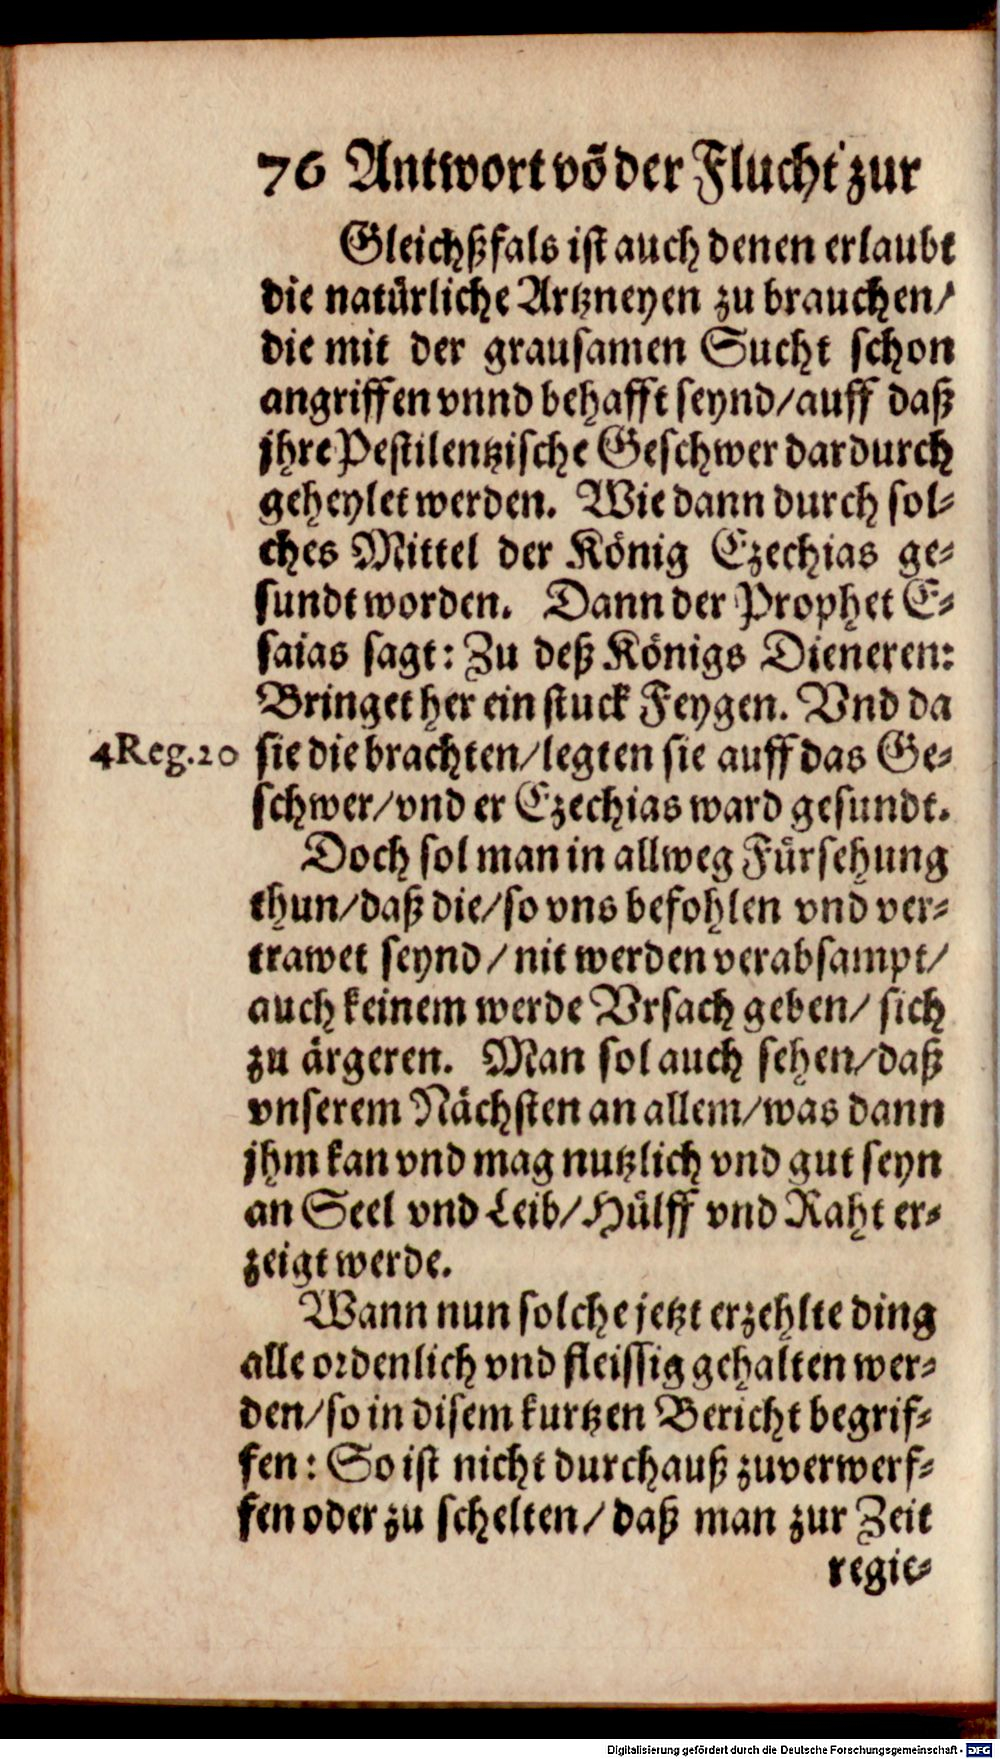 76 Antwort võ der Flucht zur
Gleichßfals ist auch denen erlaubt
die natürliche Artzneyen zu brauchen/
die mit der grausamen Sucht schon
angriffen vnnd behafft seynd/auff daß
jhre Pestilentzische Geschwer dardurch
geheylet werden. Wie dann durch sol-
ches Mittel der König Ezechias ge-
sundt worden. Dann der Prophet E-
saias sagt: Zu deß Königs Dieneren:
Bringet her ein stuck Feygen. Vnd da
4 Reg. 20 sie die brachten/legten sie auff das Ge-
schwer/vnd er Ezechias ward gesundt.
Doch sol man in allweg Fürsehung
thun/daß die/so vns befohlen vnd ver-
trawet seynd/nit werden verabsampt/
auch keinem werde Vrsach geben/ sich
zu ärgeren. Man sol auch sehen/daß
vnserem Nächsten an allem/was dann
jhm kan vnd mag nutzlich vnd gut seyn
an Seel vnd Leib/Hülff vnd Raht er-
zeigt werde.
Wann nun solche jetzt erzehlte ding
alle ordenlich vnd fleissig gehalten wer-
den/so in disem kurtzen Bericht begrif-
fen: So ist nicht durchauß zuverwerf-
fen oder zu schelten/daß man zur Zeit
regie-
Digitalisierung gefördert durch die Deutsche Forschungsgemeinschaft - DFG